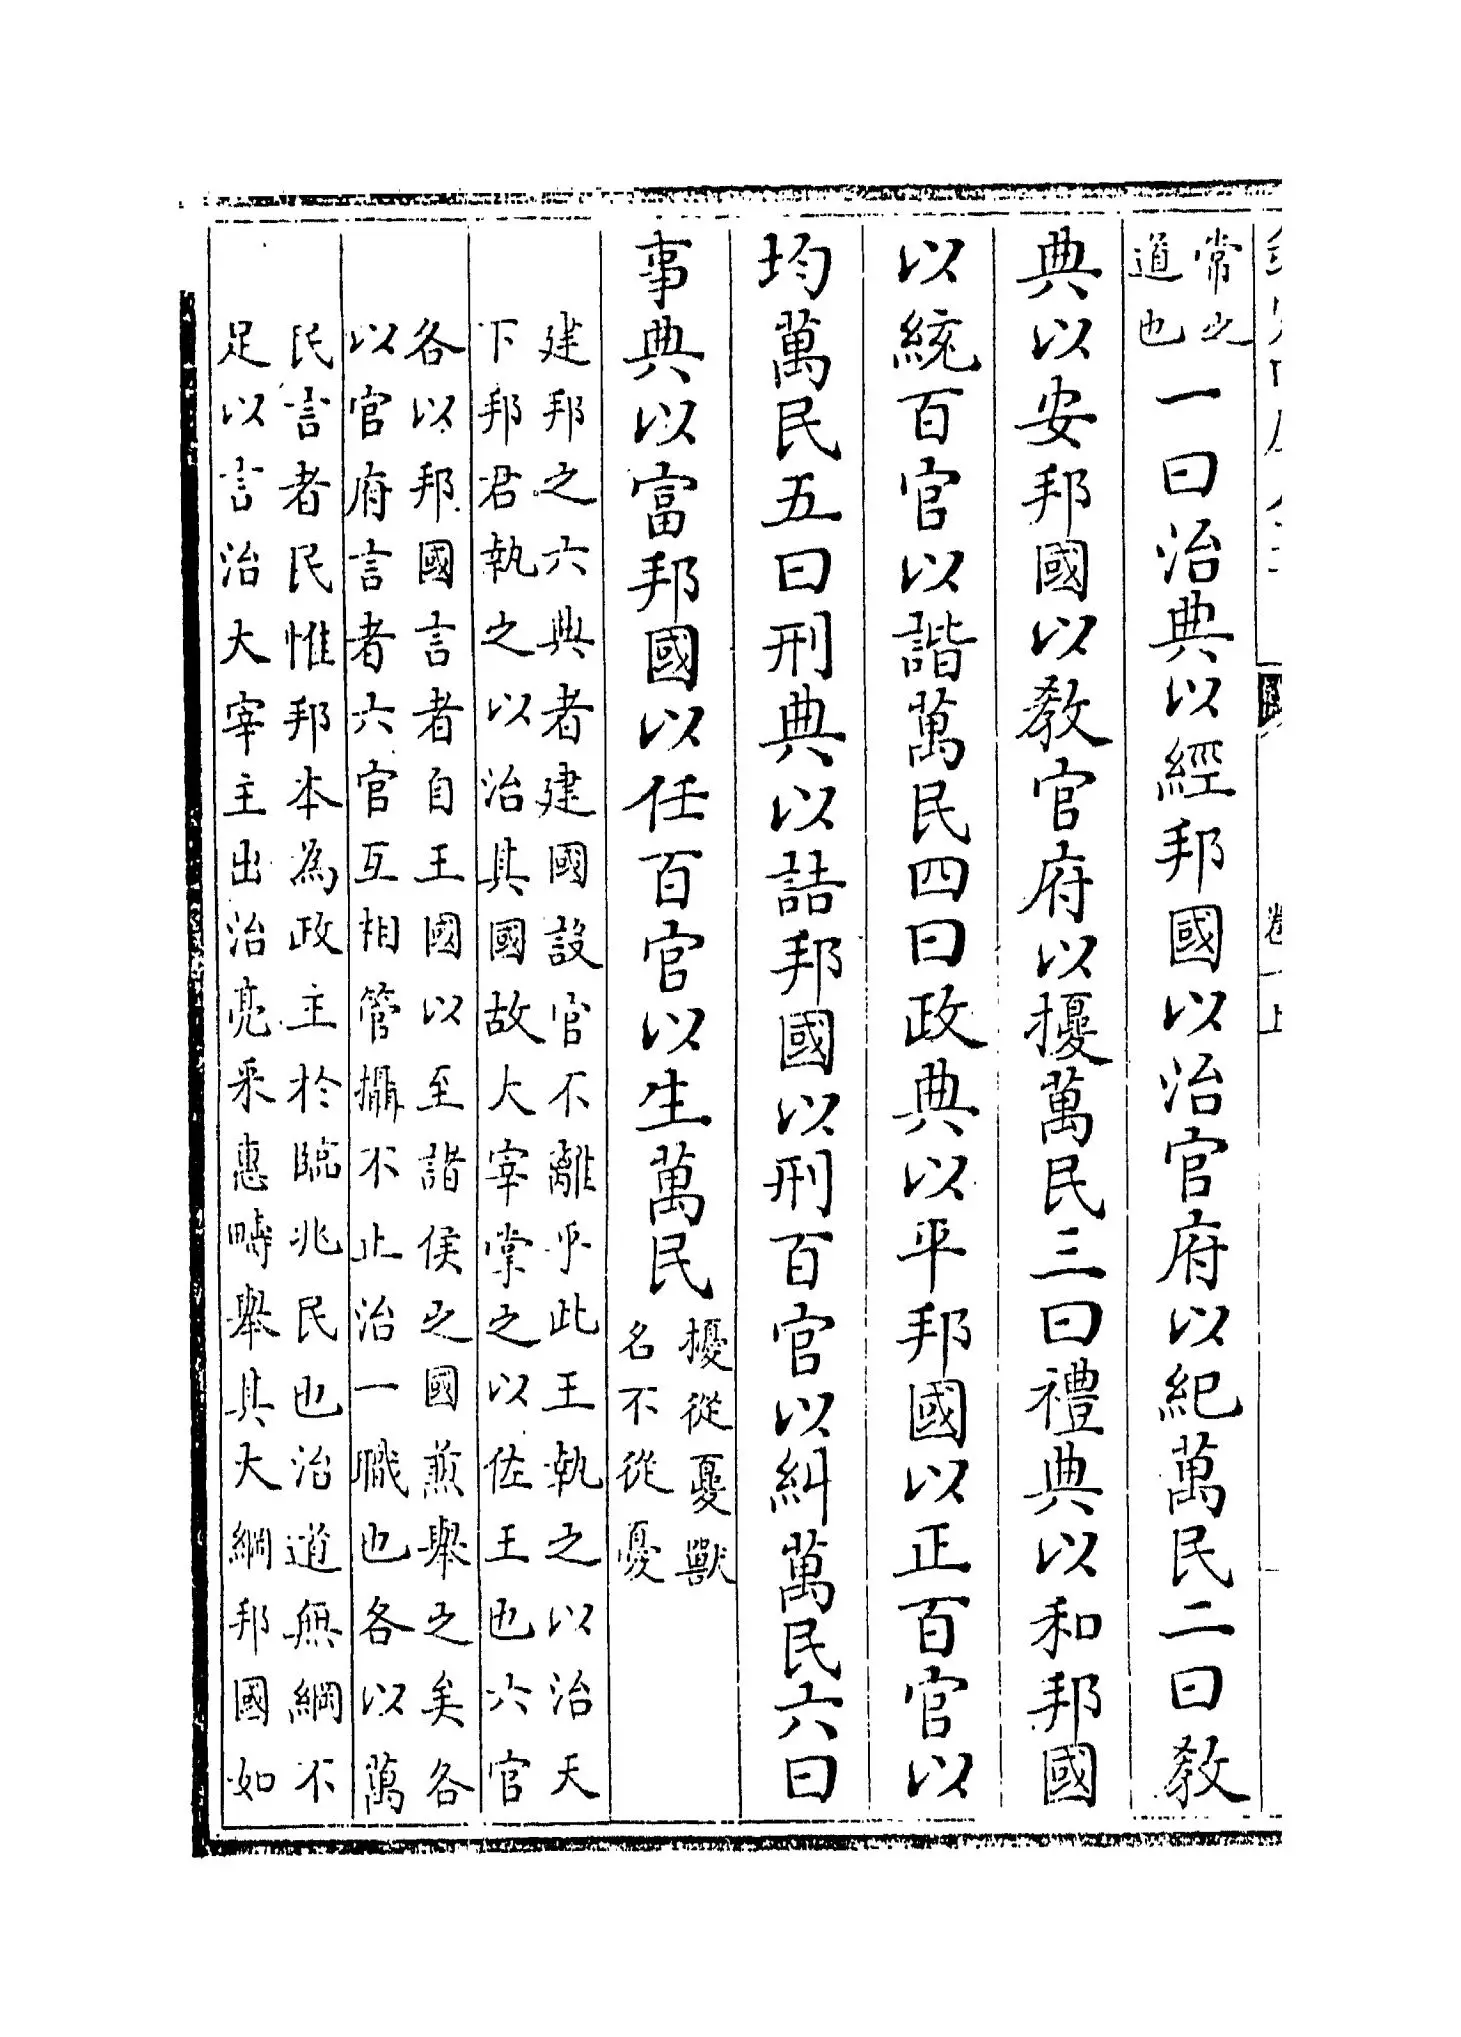 常之
道也
一曰治典以經邦國以治官府以紀萬民二曰教
典以安邦國以教官府以擾萬民三曰禮典以和邦國
以統百官以諧萬民四曰政典以平邦國以正百官以
均萬民五曰刑典以詰邦國以刑百官以糾萬民六曰
事典以富邦國以任百官以生萬民
擾從夒獸
名不從憂
建邦之六典者建國設官不離乎此王執之以治天
下邦君執之以治其國故大宰掌之以佐王也六官
各以邦國言者自王國以至諸侯之國兼舉之矣各
以官府言者六官互相管攝不止治一職也各以萬
民言者民惟邦本為政主於臨兆民也治道無綱不
足以言治大宰主出治亮采惠疇舉其大綱邦國如